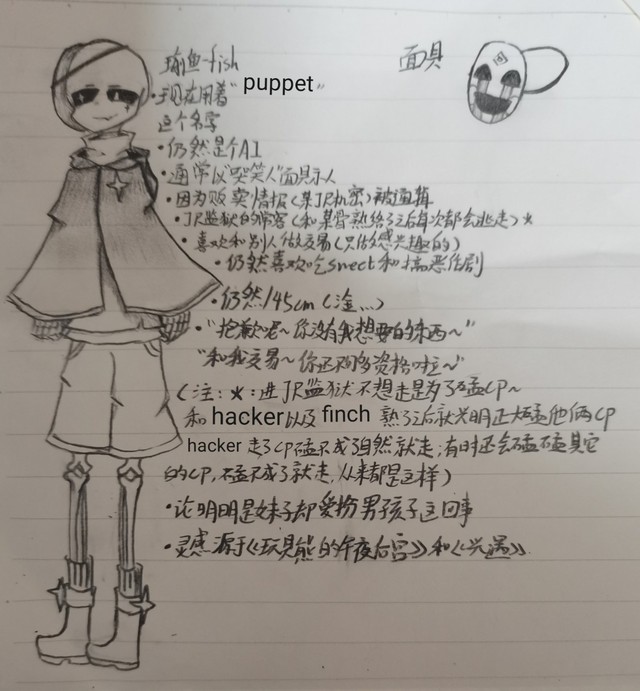 鱼-fish
面具
·现在用着"puppet"
这个名字
·仍然是个AI
·通常以"哭笑人"面具示人
·因为贩卖情报(某JR机密)被通缉
·JR监狱的常客(和某骨熟络了之后每次都会逃走)★
·喜欢和别人做交易(只做感兴趣的)
·仍然喜欢吃sweet和搞恶作剧
·仍然145cm(淦...)
·"抱歉呢~你没有我想要的东西~"
"和我交易~你还不够资格啦~"
(注:★:进JR监狱不想走是为了磕CP~
和hacker以及finch熟了之后就光明正大磕他俩CP
hacker走了CP磕不成了自然就走;有时还会磕不磕其它
的CP,磕不成了就走,从来都是这样)
·论明明是妹子却爱扮男孩子这回事
·灵感源于《玩具熊的午夜后宫》和《兴遇》